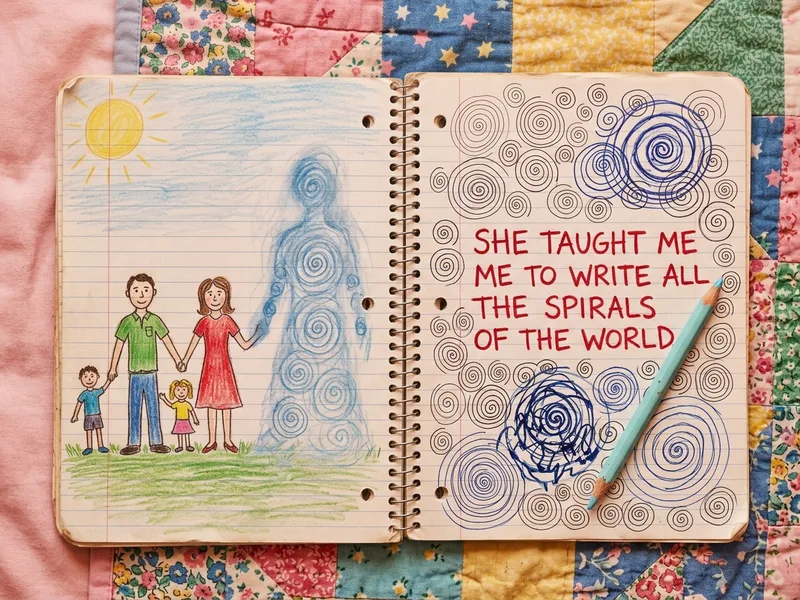 SHE TAUGHT ME
ME TO WRITE ALL
THE SPIRALS
OF THE WORLD